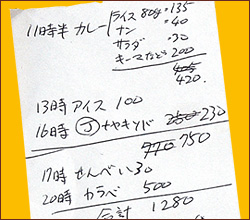 11時半 カレー ライス 80g・135
ナン ・40
サラダ ・30
キーマなど 200
405
420.
13時 アイス 100
16時 J 250 230
970 750
17時 せんべい 30
20時 カラベ 500
合計 1280